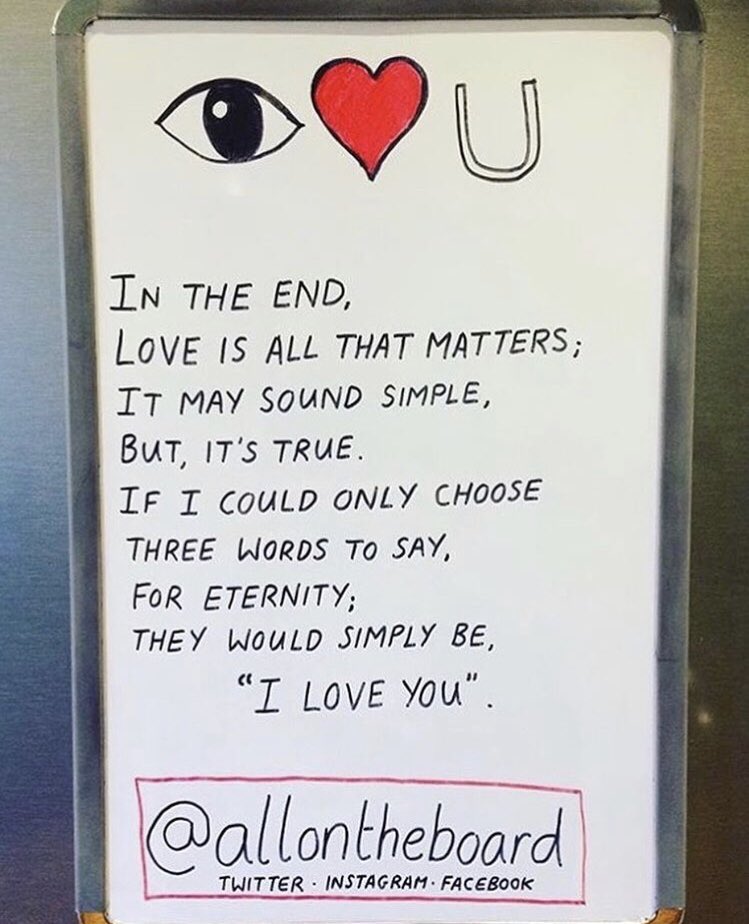 U
IN THE END,
LOVE IS ALL THAT MATTERS;
IT MAY SOUND SIMPLE,
BUT, IT'S TRUE.
IF I COULD ONLY CHOOSE
THREE WORDS TO SAY,
FOR ETERNITY;
THEY WOULD SIMPLY BE,
"I LOVE YOU".
@allontheboard
TWITTER · INSTAGRAM · FACEBOOK